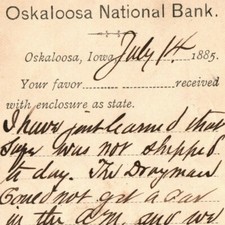 Oskaloosa National Bank.
Oskaloosa, Iowa, July 14 1885.
Your favor received
with enclosure as state.
I have just learned that
was not shipped
to day. The Drayman
Could not get a car
in the and we